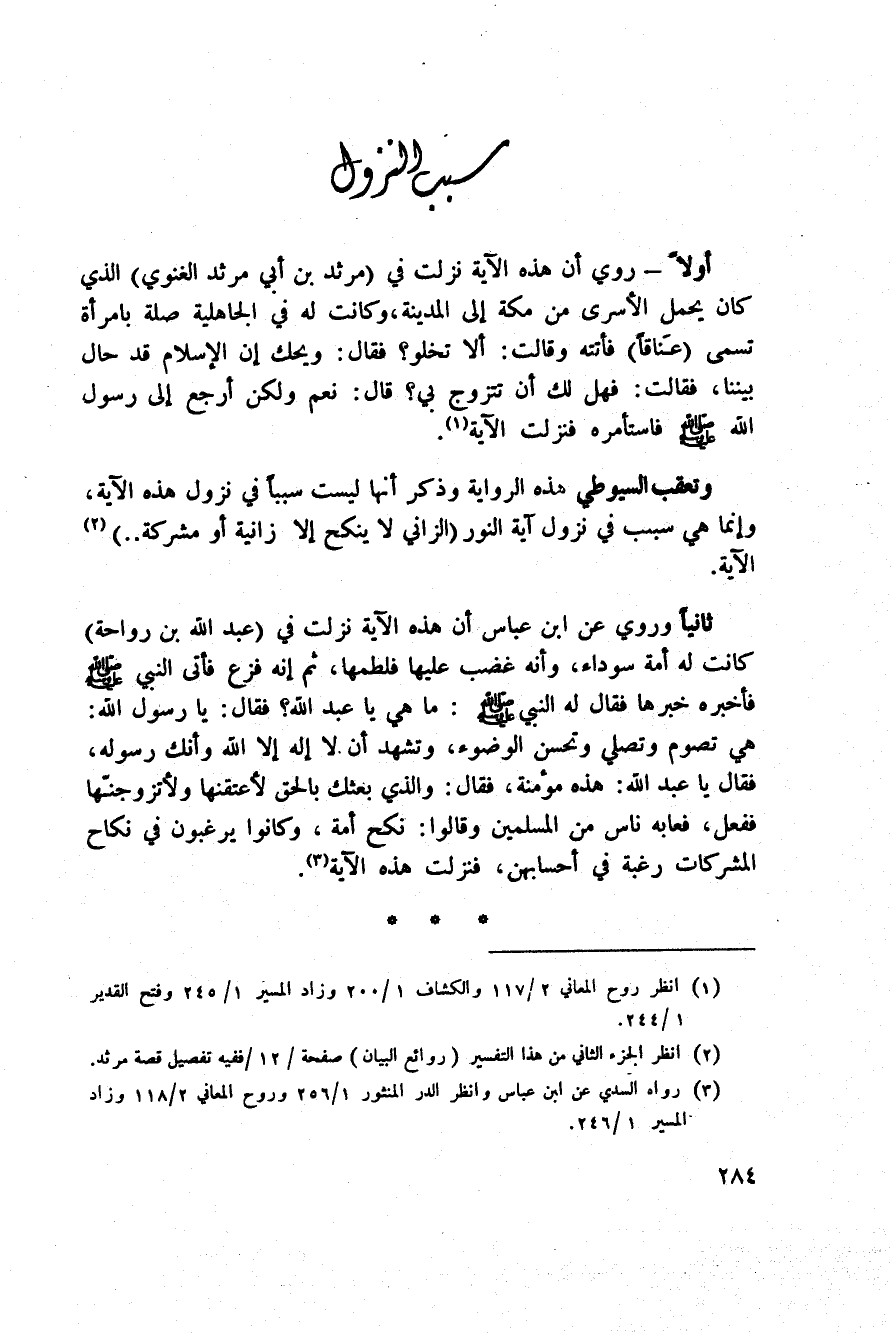 سبب النزول
أولاً – روي أن هذه الآية نزلت في (مرثد بن أبي مرثد الغنوي) الذي
كان يحمل الأسرى من مكة إلى المدينة، وكانت له في الجاهلية صلة بامرأة
تسمى (عَناقاً) فأتته وقالت: ألا تخلو؟ فقال: ويحك إن الإسلام قد حال
بيننا، فقالت: فهل لك أن تتزوج بي؟ قال: نعم ولكن أرجع إلى رسول
الله ﷺ فاستأمره فنزلت الآية(١).
وتعقب السيوطي هذه الرواية وذكر أنها ليست سبباً في نزول هذه الآية،
وإنما هي سبب في نزول آية النور (الزاني لا ينكح إلا زانية أو مشركة..) (٢)
الآية.
ثانياً وروي عن ابن عباس أن هذه الآية نزلت في (عبد الله بن رواحة)
كانت له أمة سوداء، وأنه غضب عليها فلطمها، ثم إنه فزع فأتى النبي ﷺ
فأخبره خبرها فقال له النبي ﷺ : ما هي يا عبد الله؟ فقال: يا رسول الله:
هي تصوم وتصلي وتحسن الوضوء، وتشهد أن لا إله إلا الله وأنك رسوله،
فقال يا عبد الله: هذه مؤمنة، فقال: والذي بعثك بالحق لأعتقنها ولأتزوجنّها
ففعل، فعابه ناس من المسلمين وقالوا: نكح أمة ، وكانوا يرغبون في نكاح
المشركات رغبة في أحسابهن، فنزلت هذه الآية(٣).
* * *
(١) انظر روح المعاني ٢/١١٧ والكشاف ١/٢٠٠ وزاد المسير ١/٢٤٥ وفتح القدير
١/٢٤٤.
(٢) انظر الجزء الثاني من هذا التفسير (روائع البيان) صفحة /١٢/ ففيه تفصيل قصة مرثد.
(٣) رواه السدي عن ابن عباس وانظر الدر المنثور ١/٢٥٦ وروح المعاني ٢/١١٨ وزاد
المسير ١/٢٤٦.
٢٨٤